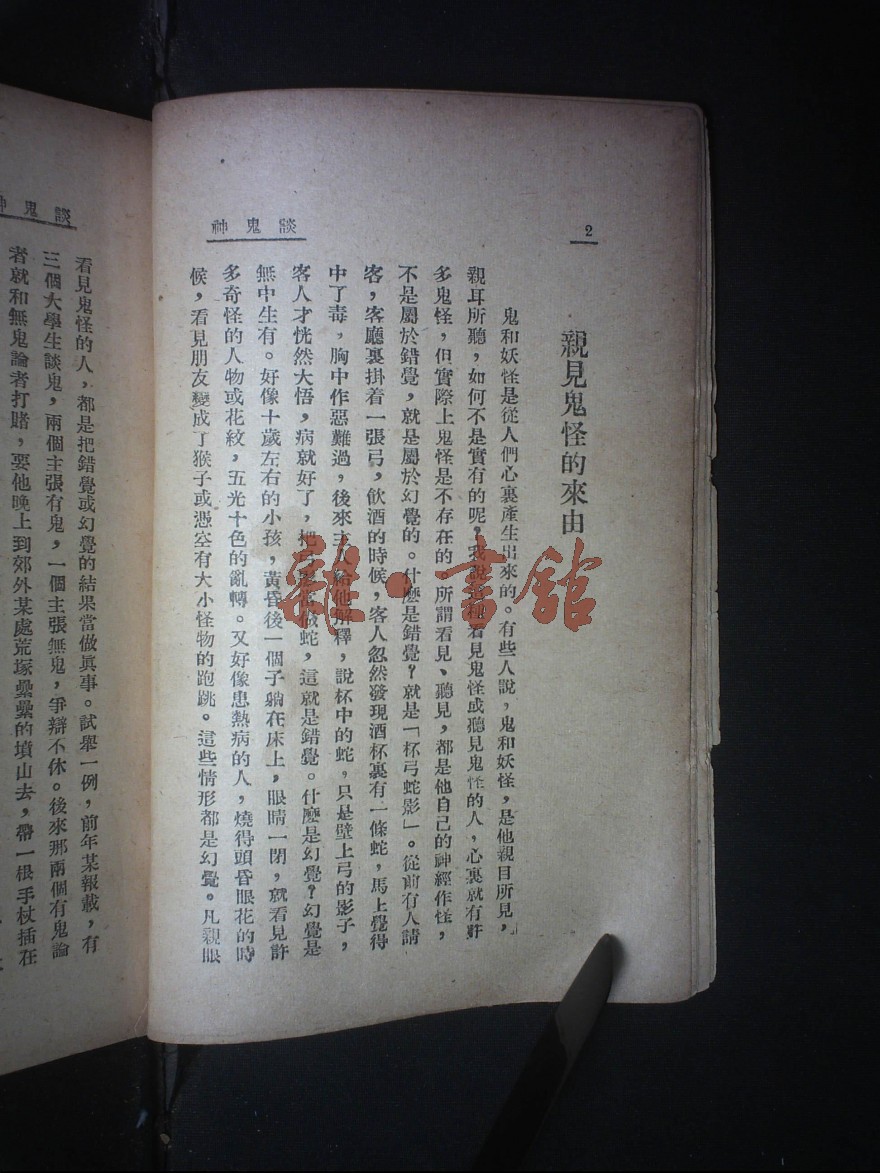 2
談鬼神
親見鬼怪的來由
鬼和妖怪是從人們心裏產生出來的。有些人說，鬼和妖怪，是他親目所見，
親耳所聽，如何不是實有的呢，我說這種看見鬼怪或聽見鬼怪的人，心裏就有許
多鬼怪，但實際上鬼怪是不存在的 所謂看見、聽見，都是他自己的神經作怪，
不是屬於錯覺，就是屬於幻覺的。什麼是錯覺？就是「杯弓蛇影」。從前有人請
客，客廳裏掛着一張弓，飲酒的時候，客人忽然發現酒杯裏有一條蛇，馬上覺得
中了毒，胸中作惡難過，後來主人給他解釋，說杯中的蛇，只是壁上弓的影子，
客人才恍然大悟，病就好了，把弓影當做蛇，這就是錯覺。什麼是幻覺？幻覺是
無中生有。好像十歲左右的小孩，黃昏後一個子躺在床上，眼睛一閉，就看見許
多奇怪的人物或花紋，五光十色的亂轉。又好像患熱病的人，燒得頭昏眼花的時
候，看見朋友變成了猴子或憑空有大小怪物的跑跳。這些情形都是幻覺。凡親眼
談鬼神
看見鬼怪的人，都是把錯覺或幻覺的結果當做眞事。試舉一例，前年某報載，有
三個大學生談鬼，兩個主張有鬼，一個主張無鬼，爭辯不休。後來那兩個有鬼論
者就和無鬼論者打賭，要他晚上到郊外某處荒塚纍纍的墳山去，帶一根手杖插在
雜·書館